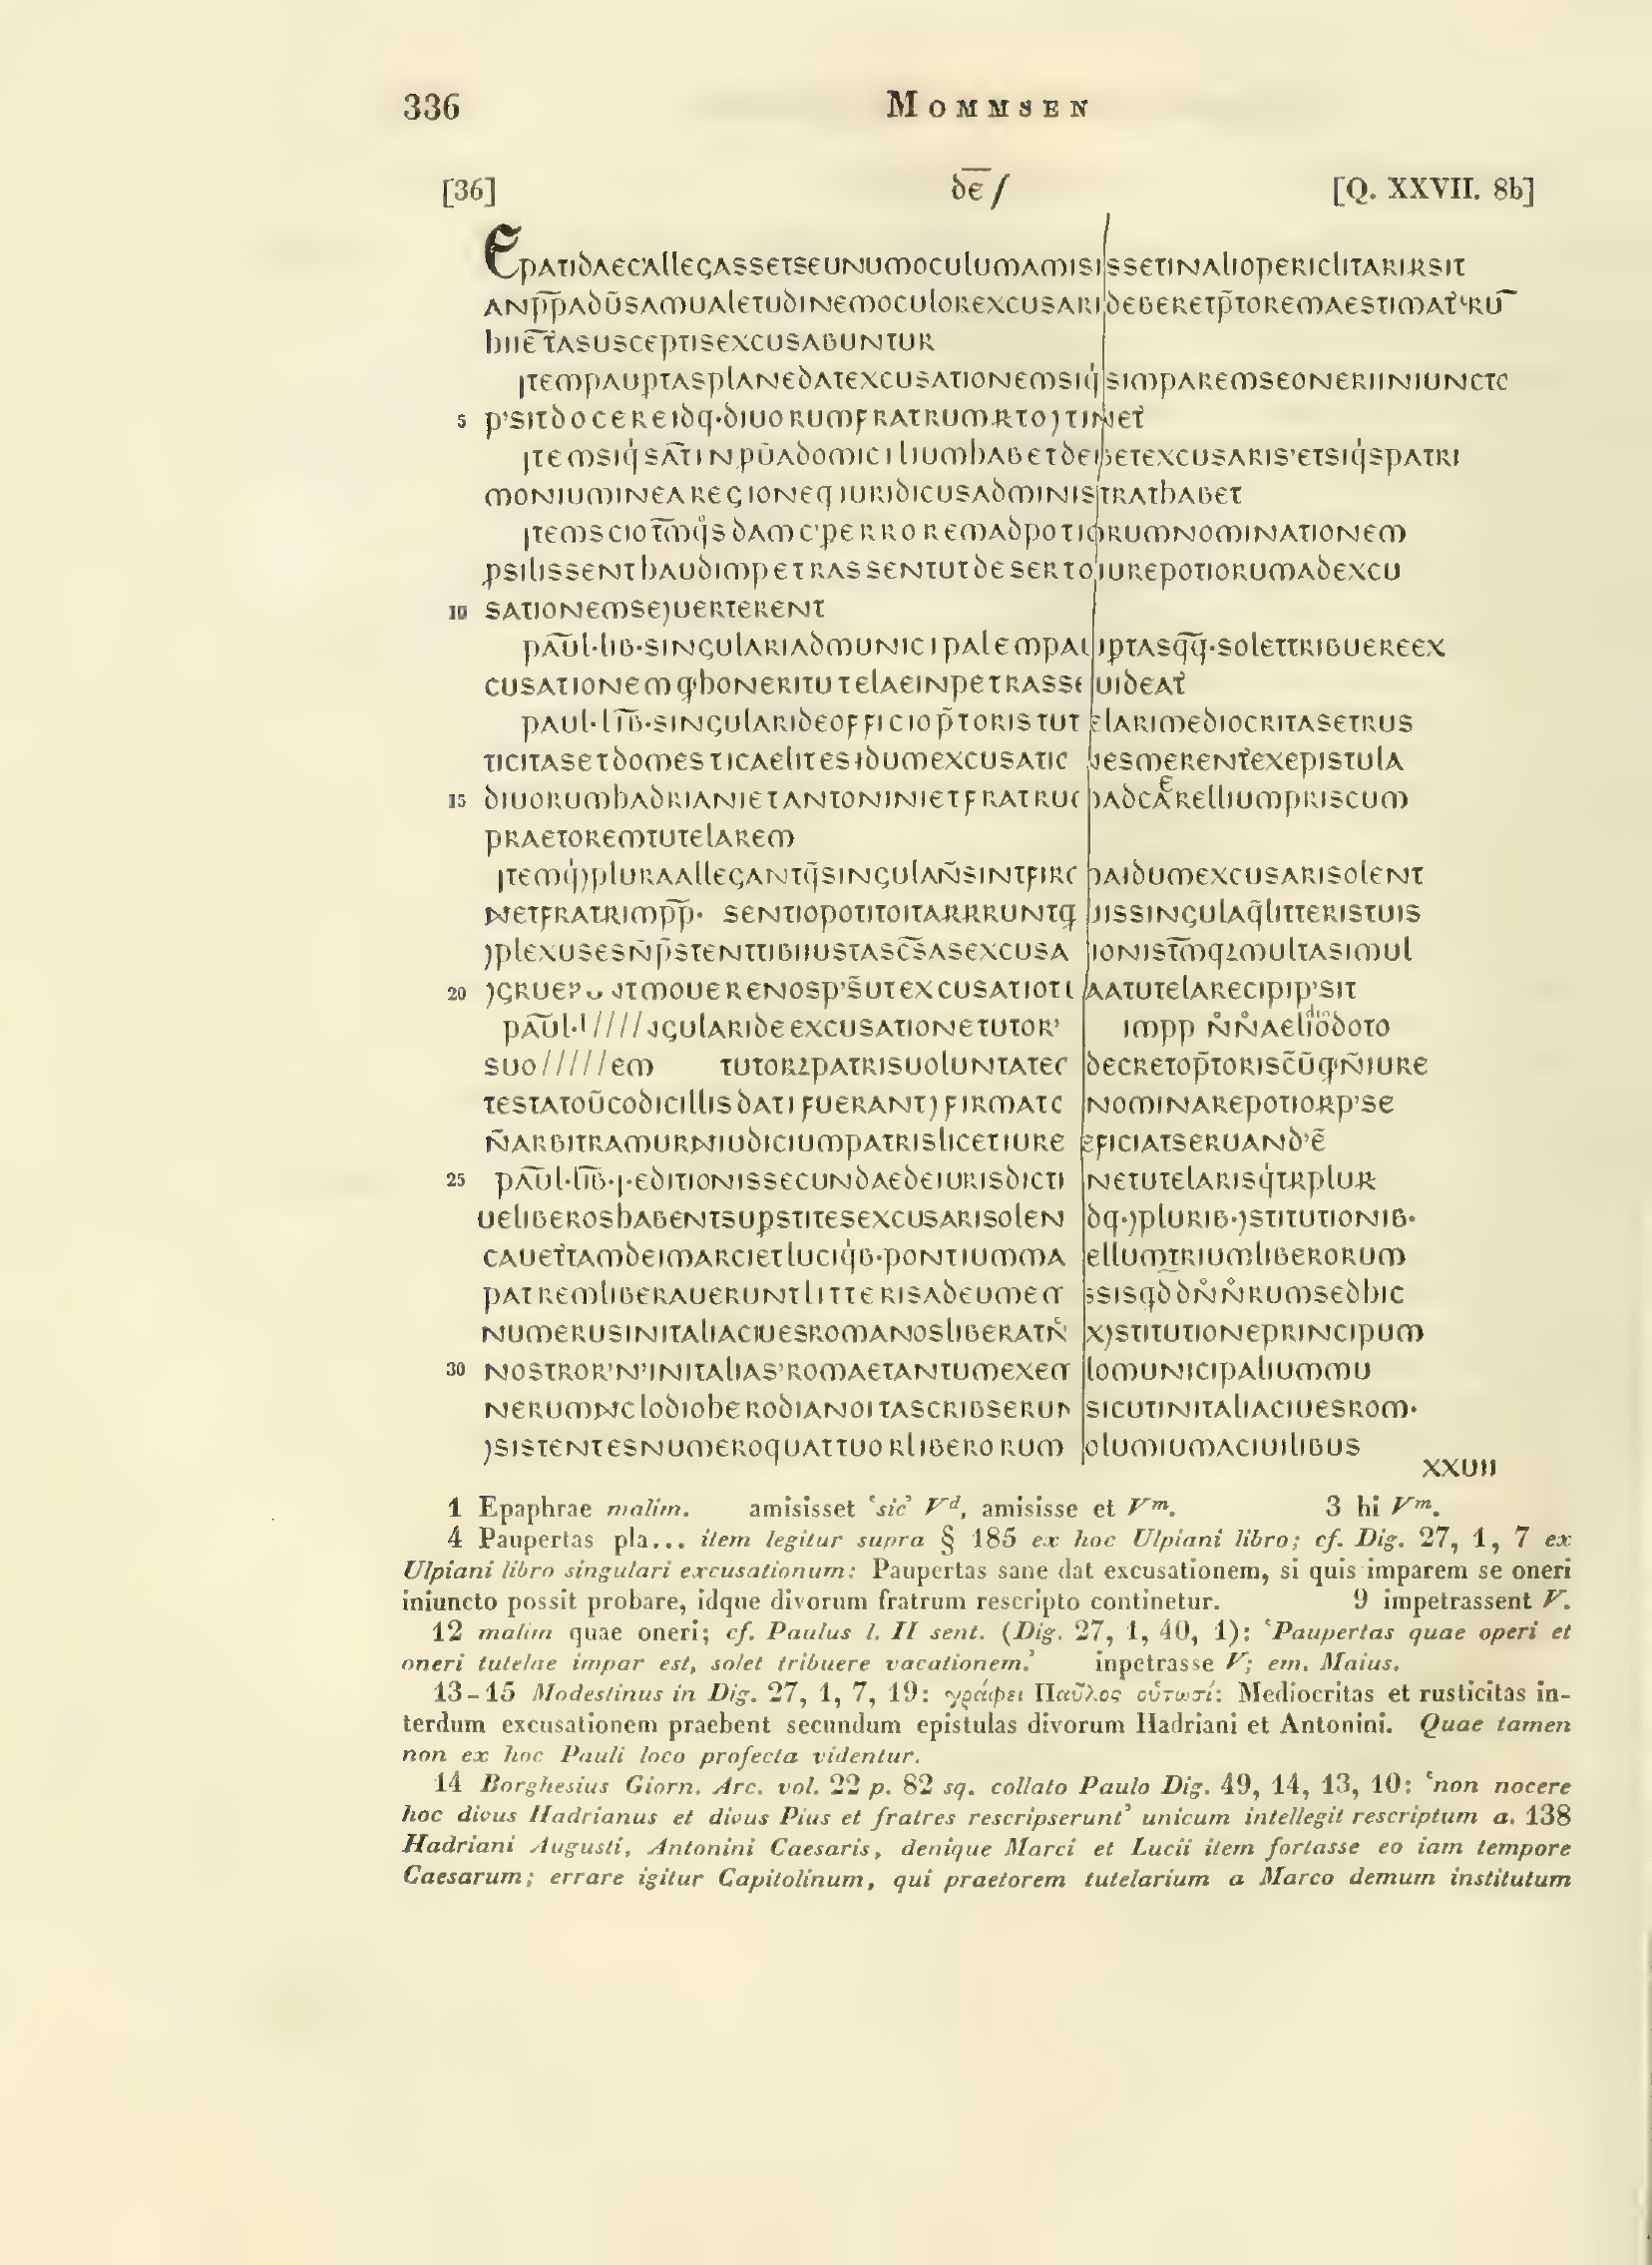 336 MOMMSEN
[36] dē∫ [Q. XXVII. 8b]
EPATIDAEC'ALLEGASSETSEUNUMOCULUMAMISISSETINALIOPERICLITARIRSIT
ANP̄P̄ADŪSAMUALETUDINEMOCULOREXCUSARIDEBERETP̄TOREMAESTIMAT
HIIE TASUSCEPTISEXCUSABUNTUR
ITEMPAUPTASPLANEDATEXCUSATIONEMSIQSIMPAREMSEONERIINIUNCTC
5 P'SITDOCEREIDQ·DIUORUMFRATRUMRTO)TINET
ITEMSIQSSATINPŪADOMICILIUMHABETDEBETEXCUSARIS'ETSIQSPATRI
MONIUMINEAREGIONEQIURIDICUSADMINISTRATHABET
ITEMSCIOT̄M̄QSDAMC'PERROREMADPOTIORUMNOMINATIONEM
PSILISSENTHAUDIMPETRASSENTUTDESERTOIUREPOTIORUMADEXCU
10 SATIONEMSE)UERTERENT
PAŪL·LIB·SINGULARIADMUNICIPALEMPAUPTASQ̄Q̄·SOLETTRIBUEREEX
CUSATIONEMQ'HONERITUTELAEINPETRASSEUIDEAT
PAUL·LIB̄·SINGULARIDEOFFICIOP̄TORISTUTELARIMEDIOCRITASETRUS
TICITASETDOMESTICAELITESIDUMEXCUSATIC IESMERENTEXEPISTULA
15 DIUORUMHADRIANIETANTONINIETFRATRUC HADCAERELLIUMPRISCUM
PRAETOREMTUTELAREM
ITEMQ)PLURAALLEGANTQ̄SINGULAN̄SINTFIRC HAIDUMEXCUSARISOLENT
NETFRATRIMPP̄· SENTIOPOTITOITARRRUNTQ IISSINGULAQ̄LITTERISTUIS
)PLEXUSESN̄P̄STENTTIBIIUSTASC̄S̄ASEXCUSA IONIST̄M̄QZMULTASIMUL
20 )GRUE TMOUERENOSP'S̄UTEXCUSATIOTI AATUTELARECIPIP'SIT
PAŪL·L////GULARIDEEXCUSATIONETUTOR' IMPP N̊N̊AELIODOTO
SUO/////EM TUTORZPATRISUOLUNTATEC DECRETOP̄TORISC̄ŪQ'N̄IURE
TESTATOŪCODICILLISDATIFUERANT)FIRMATC NOMINAREPOTIORP'SE
N̄ARBITRAMURNIUDICIUMPATRISLICETIURE EFICIATSERUAND'Ē
25 PAŪL·LIB̄·I·EDITIONISSECUNDAEDEIURISDICTI NETUTELARISQTRPLUR
UELIBEROSHABENTSUPSTITESEXCUSARISOLEN DQ·)PLURIB·)STITUTIONIB·
CAUETTAMDEIMARCIETLUCIQB·PONTIUMMA ELLUMTRIUMLIBERORUM
PATREMLIBERAUERUNTLITTERISADEUMEM SSISQDDN̊N̊RUMSEDHIC
NUMERUSINITALIACIUESROMANOSLIBERATN X)STITUTIONEPRINCIPUM
30 NOSTROR'N'INITALIAS'ROMAETANTUMEXEM LOMUNICIPALIUMMU
NERUMNCLODIOHERODIANOITASCRIBSERUN SICUTINITALIACIUESROM·
)SISTENTESNUMEROQUATTUORLIBERORUM OLUMIUMACIUILIBUS
XXUII
1 Epaphrae malim. amisisset ‘sic’ Vd, amisisse et Vm. 3 hi Vm.
4 Paupertas pla... item legitur supra § 185 ex hoc Ulpiani libro; cf. Dig. 27, 1, 7 ex
Ulpiani libro singulari excusationum: Paupertas sane dat excusationem, si quis imparem se oneri
iniuncto possit probare, idque divorum fratrum rescripto continetur. 9 impetrassent V.
12 malim quae oneri; cf. Paulus l. II sent. (Dig. 27, 1, 40, 1): ‘Paupertas quae operi et
oneri tutelae impar est, solet tribuere vacationem.’ inpetrasse V; em. Maius.
13-15 Modestinus in Dig. 27, 1, 7, 19: γράφει Παῦλος οὑτωσί: Mediocritas et rusticitas in-
terdum excusationem praebent secundum epistulas divorum Hadriani et Antonini. Quae tamen
non ex hoc Pauli loco profecta videntur.
14 Borghesius Giorn. Arc. vol. 22 p. 82 sq. collato Paulo Dig. 49, 14, 13, 10: ‘non nocere
hoc divus Hadrianus et divus Pius et fratres rescripserunt’ unicum intellegit rescriptum a. 138
Hadriani Augusti, Antonini Caesaris, denique Marci et Lucii item fortasse eo iam tempore
Caesarum; errare igitur Capitolinum, qui praetorem tutelarium a Marco demum institutum